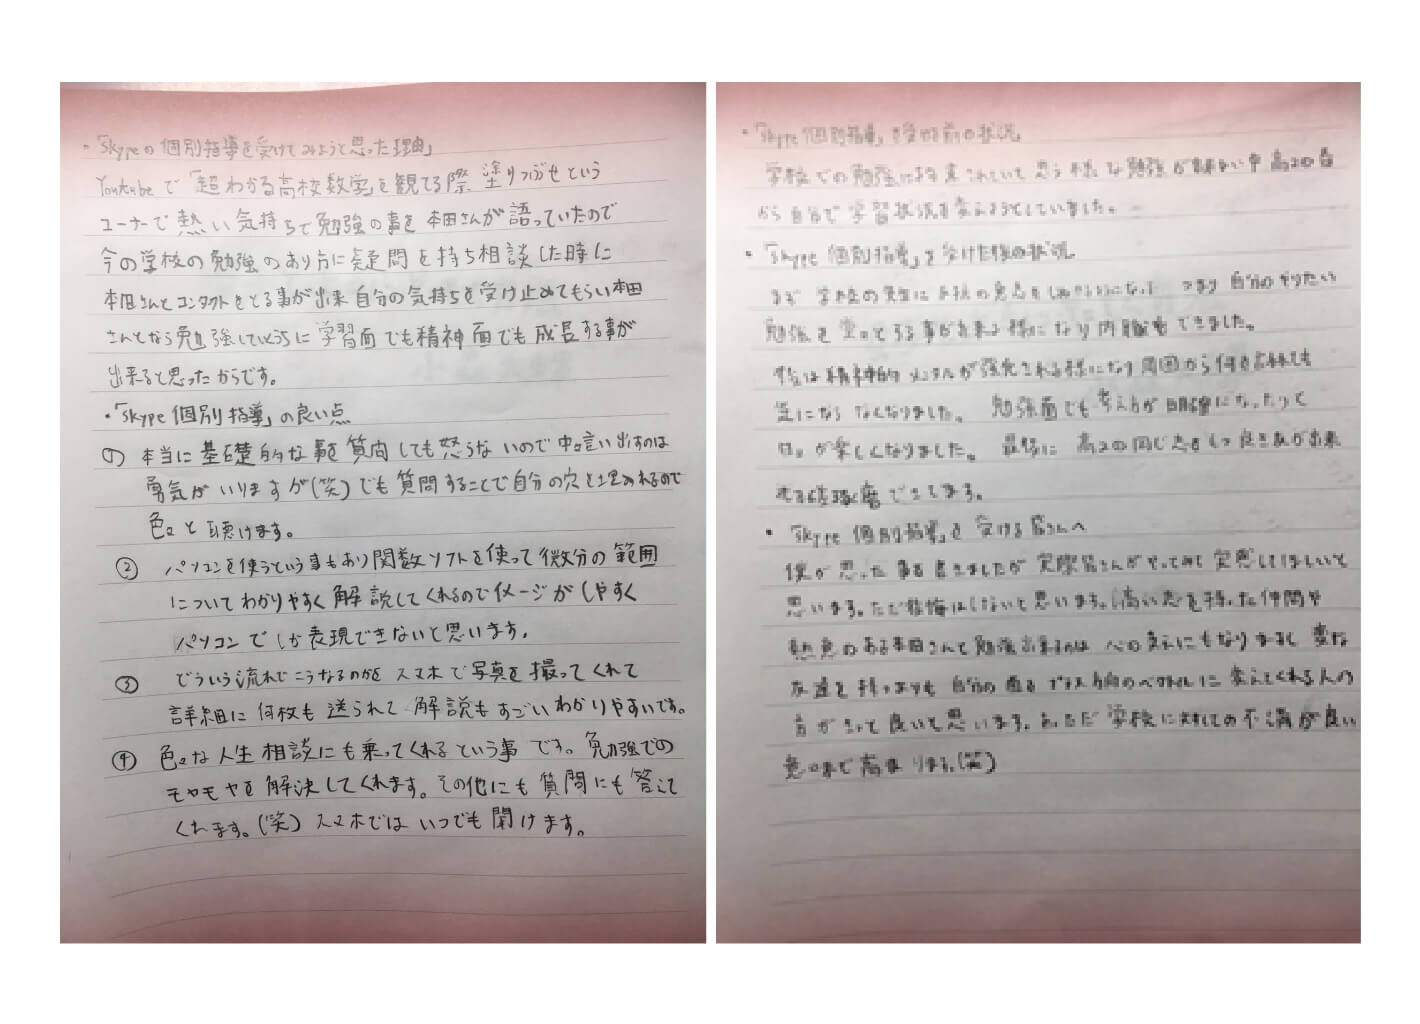 ・「Skypeの個別指導を受けてみようと思った理由」
Youtubeで「超わかる高校数学」を観てる際 塗りつぶせという
コーナーで熱い気持ちで勉強の事を本田さんが語っていたので
今の学校の勉強のあり方に疑問を持ち相談した時に
本田さんとコンタクトをとる事が出来自分の気持ちを受け止めてもらい本田
さんとなら勉強していくうちに学習面でも精神面でも成長する事が
出来ると思ったからです。
・「Skype個別指導」の良い点
① 本当に基礎的な事を質問しても怒らないので中々言い出すのは
勇気がいりますが(笑)でも質問することで自分の穴を埋めれるので
色々と聴けます。
② パソコンを使うという事もあり関数ソフトを使って微分の範囲
についてわかりやすく解説してくれるのでイメージがしやすく
パソコンでしか表現できないと思います。
③ どういう流れでこうなるのかをスマホで写真を撮ってくれて
詳細に何枚も送られて解説もすごいわかりやすいです。
④ 色々な人生相談にも乗ってくれるという事です。勉強での
モヤモヤを解決してくれます。その他にも質問にも答えて
くれます。(笑)スマホではいつでも聞けます。
・「Skype個別指導」を受ける前の状況
学校での勉強に拘束されていて思う様な勉強が出来ない中高2の春
から自分で学習状況を変えようとしていました。
・「Skype個別指導」を受けた後の状況
まず学校の先生に つまり自分のやりたい
勉強を堂々とする事が出来る様になり内職もできました。
後は精神的メンタルが強化される様になり周囲から何を言われても
気にならなくなりました。勉強面でも考え方が明確になったりと
日々が楽しくなりました。最後に高2の同じ志をもつ良き友が出来
切磋琢磨できてます。
・「Skype個別指導」を受ける皆さんへ
僕が思った事を書きましたが実際皆さんがやってみて実感してほしいと
思います。ただ後悔はしないと思います。高い志を持った仲間や
熱意のある本田さんと勉強出来るのは心の支えにもなりますし変な
友達を持つよりも自分の プラス方向のベクトルに変えてくれる人の
方がきっと良いと思います。ただ学校に対しての不満が良い
意味で高まります。(笑)